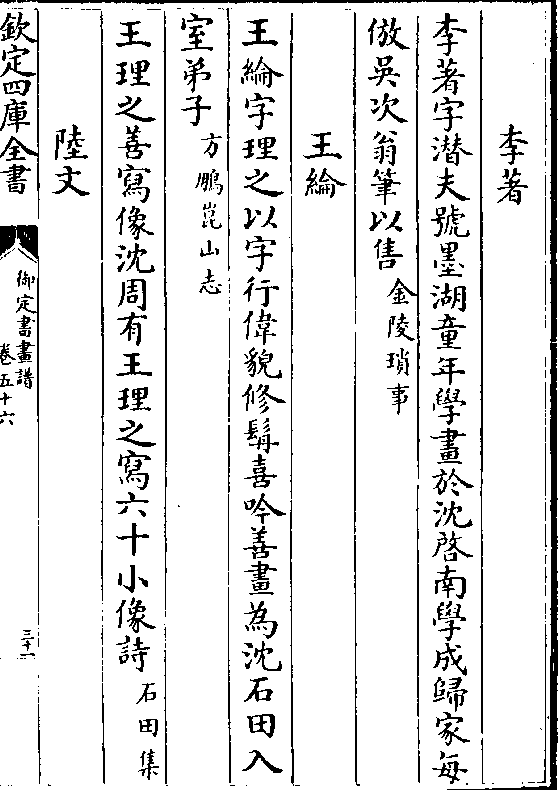 李著
李著字潛夫號墨湖童年學畫於沈啓南學成歸家每
倣吳次翁筆以售金陵瑣事
王綸
王綸字理之以字行偉貌修髯喜吟善畫為沈石田入
室弟子方鵬崑山志
王理之善寫像沈周有王理之寫六十小像詩石田集
陸文
欽定四庫全書
御定書畫譜
卷五十六
三十一